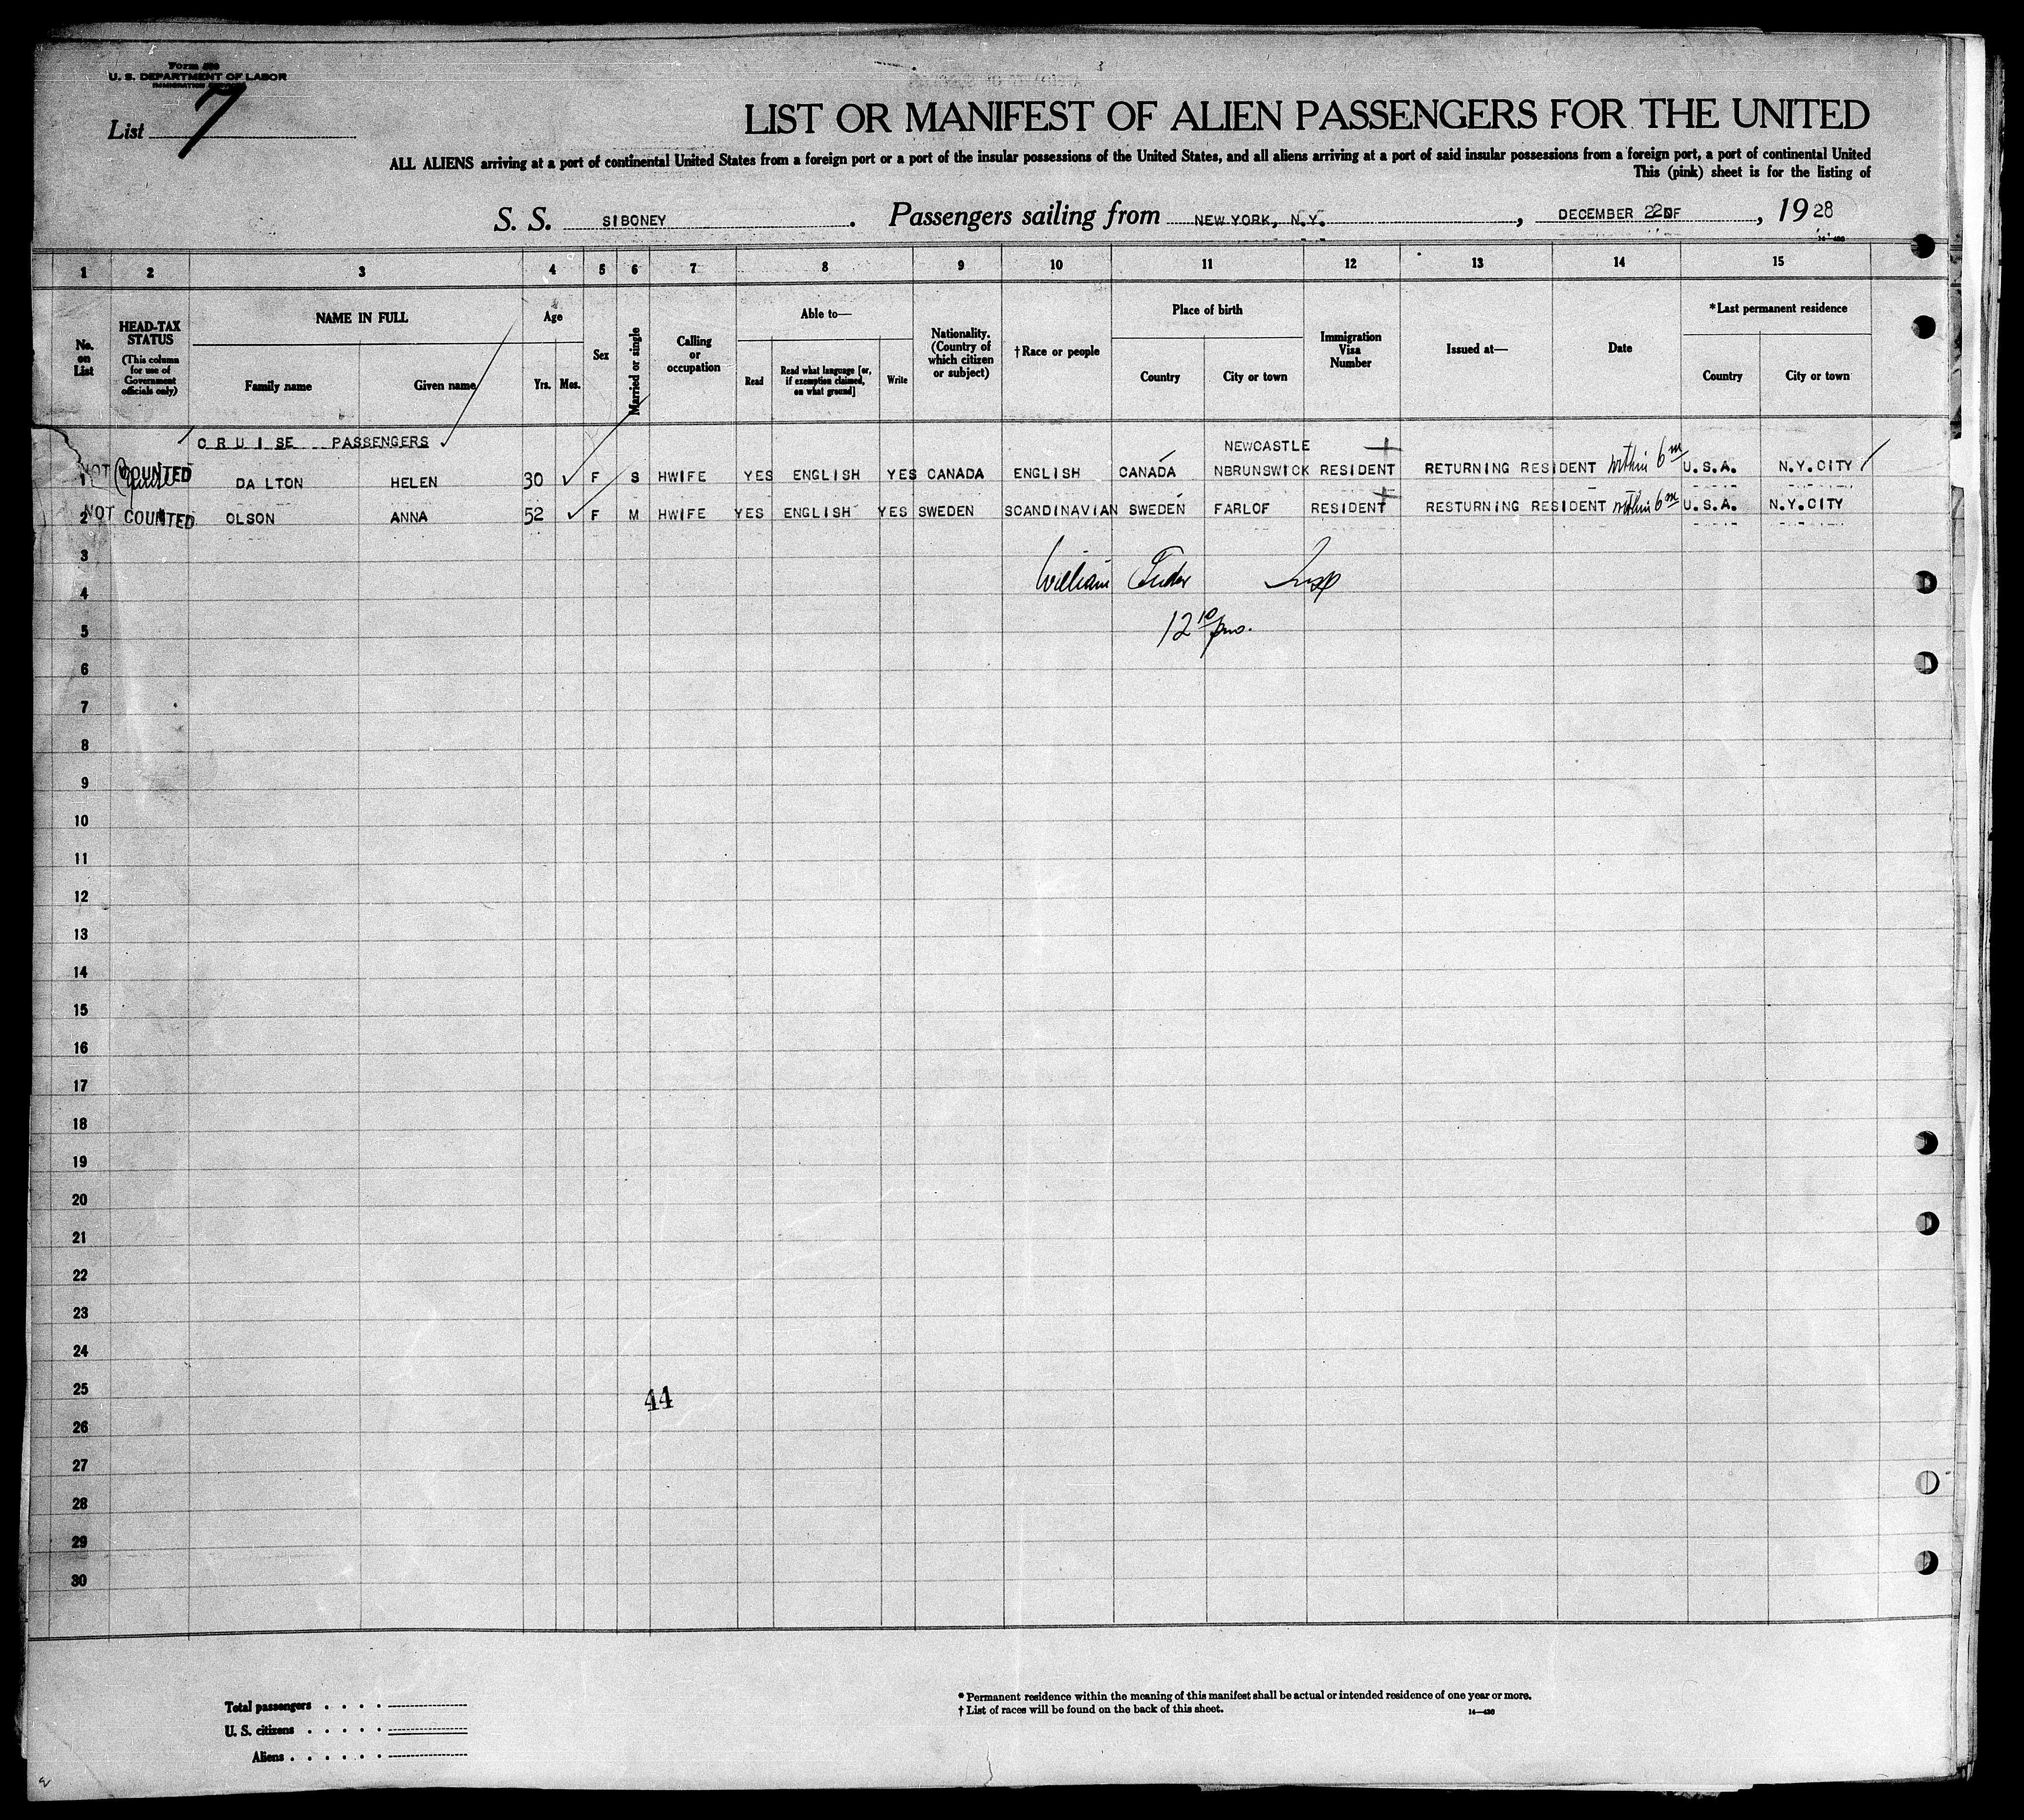 Form 500
U. S. DEPARTMENT OF LABOR
IMMIGRATION SERVICE
List 7
LIST OR MANIFEST OF ALIEN PASSENGERS FOR THE UNITED
ALL ALIENS arriving at a port of continental United States from a foreign port or a port of the insular possessions of the United States, and all aliens arriving at a port of said insular possessions from a foreign port, a port of continental United
This (pink) sheet is for the listing of
S. S. SIBONEY. Passengers sailing from NEW YORK, N.Y., DECEMBER 22DF, 1928
1 2 3 4 5 6 7 8 9 10 11 12 13 14 15
No. on List
HEAD-TAX STATUS (This column for use of Government officials only)
NAME IN FULL
Family name Given name
Age
Yrs. Mos.
Sex
Married or single
Calling or occupation
Able to—
Read
Read what language [or, if exemption claimed, on what ground]
Write
Nationality. (Country of which citizen or subject)
†Race or people
Place of birth
Country City or town
Immigration Visa Number
Issued at—
Date
*Last permanent residence
Country City or town
CRUISE PASSENGERS
NEWCASTLE
1 NOT COUNTED DALTON HELEN 30 F S HWIFE YES ENGLISH YES CANADA ENGLISH CANADA NBRUNSWICK RESIDENT RETURNING RESIDENT within 6 m U.S.A. N.Y.CITY
2 NOT COUNTED OLSON ANNA 52 F M HWIFE YES ENGLISH YES SWEDEN SCANDINAVIAN SWEDEN FARLOF RESIDENT RESTURNING RESIDENT within 6 m U.S.A. N.Y.CITY
3
William Tudor Insp
4
12 10 pm.
5
6
7
8
9
10
11
12
13
14
15
16
17
18
19
20
21
22
23
24
25
44
26
27
28
29
30
Total passengers . . . .
U. S. citizens . . . . .
Aliens . . . . . .
* Permanent residence within the meaning of this manifest shall be actual or intended residence of one year or more.
† List of races will be found on the back of this sheet.
14—430